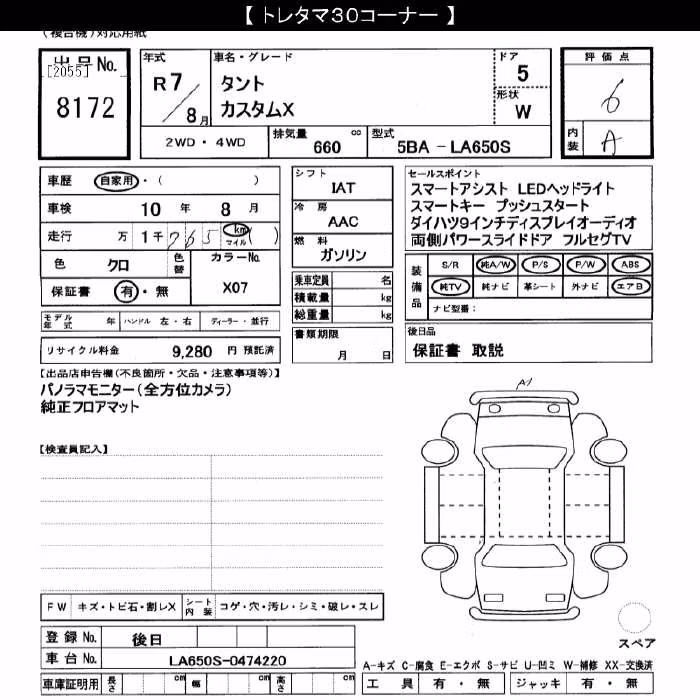 【 トレタマ30コーナー 】
(複合機)対応用紙
出品No.
[2055]
8172
年式 R7/8月
車名・グレード
タント
カスタムX
ドア 5
形状 W
評価点 6
内装 A
2WD・4WD 排気量 660 cc 型式 5BA - LA650S
車歴 自家用・( )
車検 10 年 8 月
走行 万 1千765 km マイル ( )
色 クロ 色替 カラーNo.
保証書 有・無 X07
モデル年式 年 ハンドル 左・右 ディーラー・並行
リサイクル料金 9,280 円 預託済
シフト
IAT
冷房
AAC
燃料
ガソリン
乗車定員 名
積載量 kg
総重量 kg
書類期限
月 日
セールスポイント
スマートアシスト LEDヘッドライト
スマートキー プッシュスタート
ダイハツ9インチディスプレイオーディオ
両側パワースライドドア フルセグTV
装備品
S/R 純A/W P/S P/W ABS
純TV 純ナビ 革シート 外ナビ エアB
ナビ型番:
後日品
保証書 取説
【出品店申告欄(不良箇所・欠品・注意事項等)】
パノラマモニター(全方位カメラ)
純正フロアマット
【検査員記入】
A1
スペア
FW キズ・トビ石・割レX シート内装 コゲ・穴・汚レ・シミ・破レ・スレ
登録No. 後日
車台No. LA650S-0474220
車庫証明用 長さ cm 幅 cm 高さ cm
A-キズ C-腐食 E-エクボ S-サビ U-凹ミ W-補修 XX-交換済
工具 有・無 ジャッキ 有・無